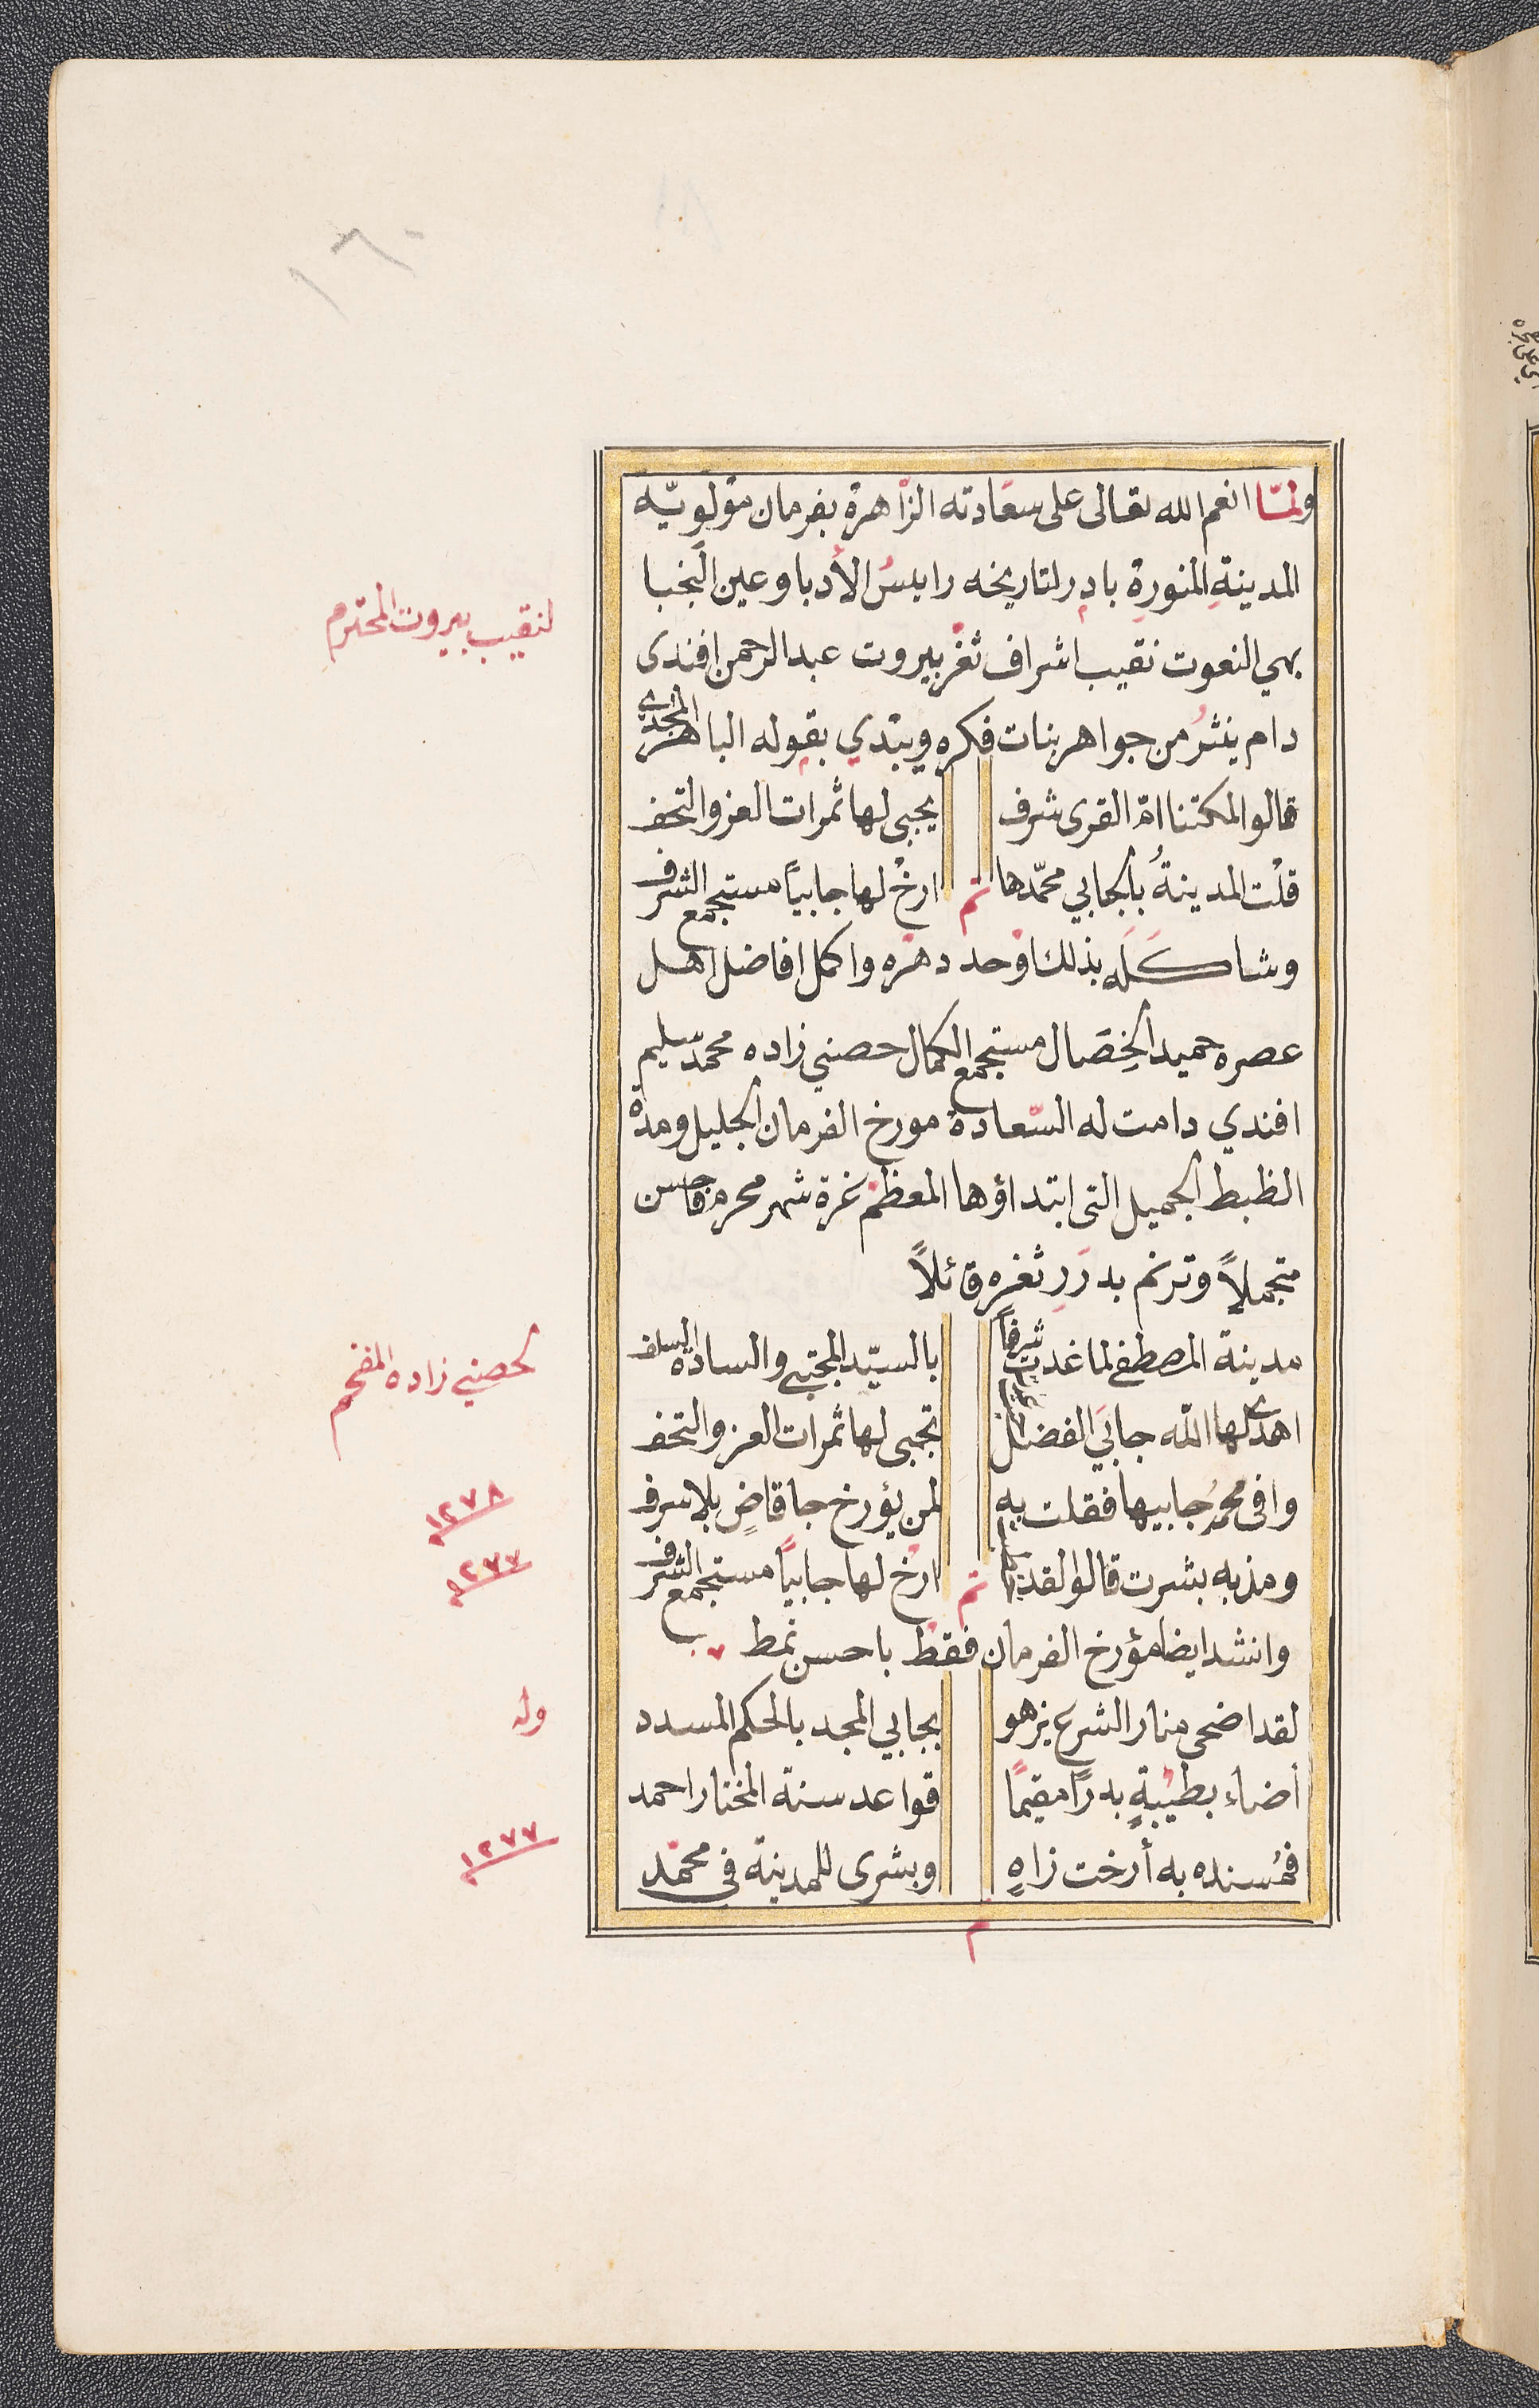 ١٦٠
ولمّا انعم الله تعالى على سعادته الزاهرة بفرمان مولويّه
المدينةِ المنورةِ بادر لتاريخه رايسُ الأدبا وعين النجبا
لنقيب بيروت المحترم
بهي النعوت نقيب اشراف ثغر بيروت عبد الرحمن افندى
دام ينثرُ من جواهر بنات فكره ويبتدي بقوله الباهر المجدي
قالوا لمكتنا امّ القرى شرف يجبى لها ثمرات العز والتحف
قلت المدينةُ بالجابي محمّدها تم ارخْ لها جابياً مستجمع الشرف
وشاكَلَه بذلك اوحد دهره واكمل افاضل اهل
عصره حميد الخِصَال مستجمع الكمال حصني زاده محمّد سليم
افندي دامت له السّعادة مورخ الفرمان الجليل ومدة
الظبط الجميل التى ابتداؤها المعظم غرة شهر محرم فاحسن
متجملاً وترنم بدرَرِ ثغره قائلاً
لحصني زاده المفخم
مدينة المصطفى لما غدت شرفاً بالسيّد المجتبى والسادة السلف
اهدى لها الله جابَي الفضل تجبى لها ثمرات العز والتحف
١٢٧٨
وافى محمدُ جابيها فقلت به لمن يؤرخ جا قاضٍ بلا سرف
١٢٧٧
ومذ به بشرت قالوا لقد تم ارخُ لها جابياً مستجمع الشرف
وانشد ايضا مؤرخ الفرمان فقط باحسن نمط
وله
لقد اضحى منار الشرع يزهو بجابي المجد بالحكم المسدد
أضاء بطيبةٍ بدرًا مقيمًا قواعد سنة المختار احمد
١٢٧٧
فمُسنده به أرخت زاهٍ وبشرى للمدينة فى محمّد
م